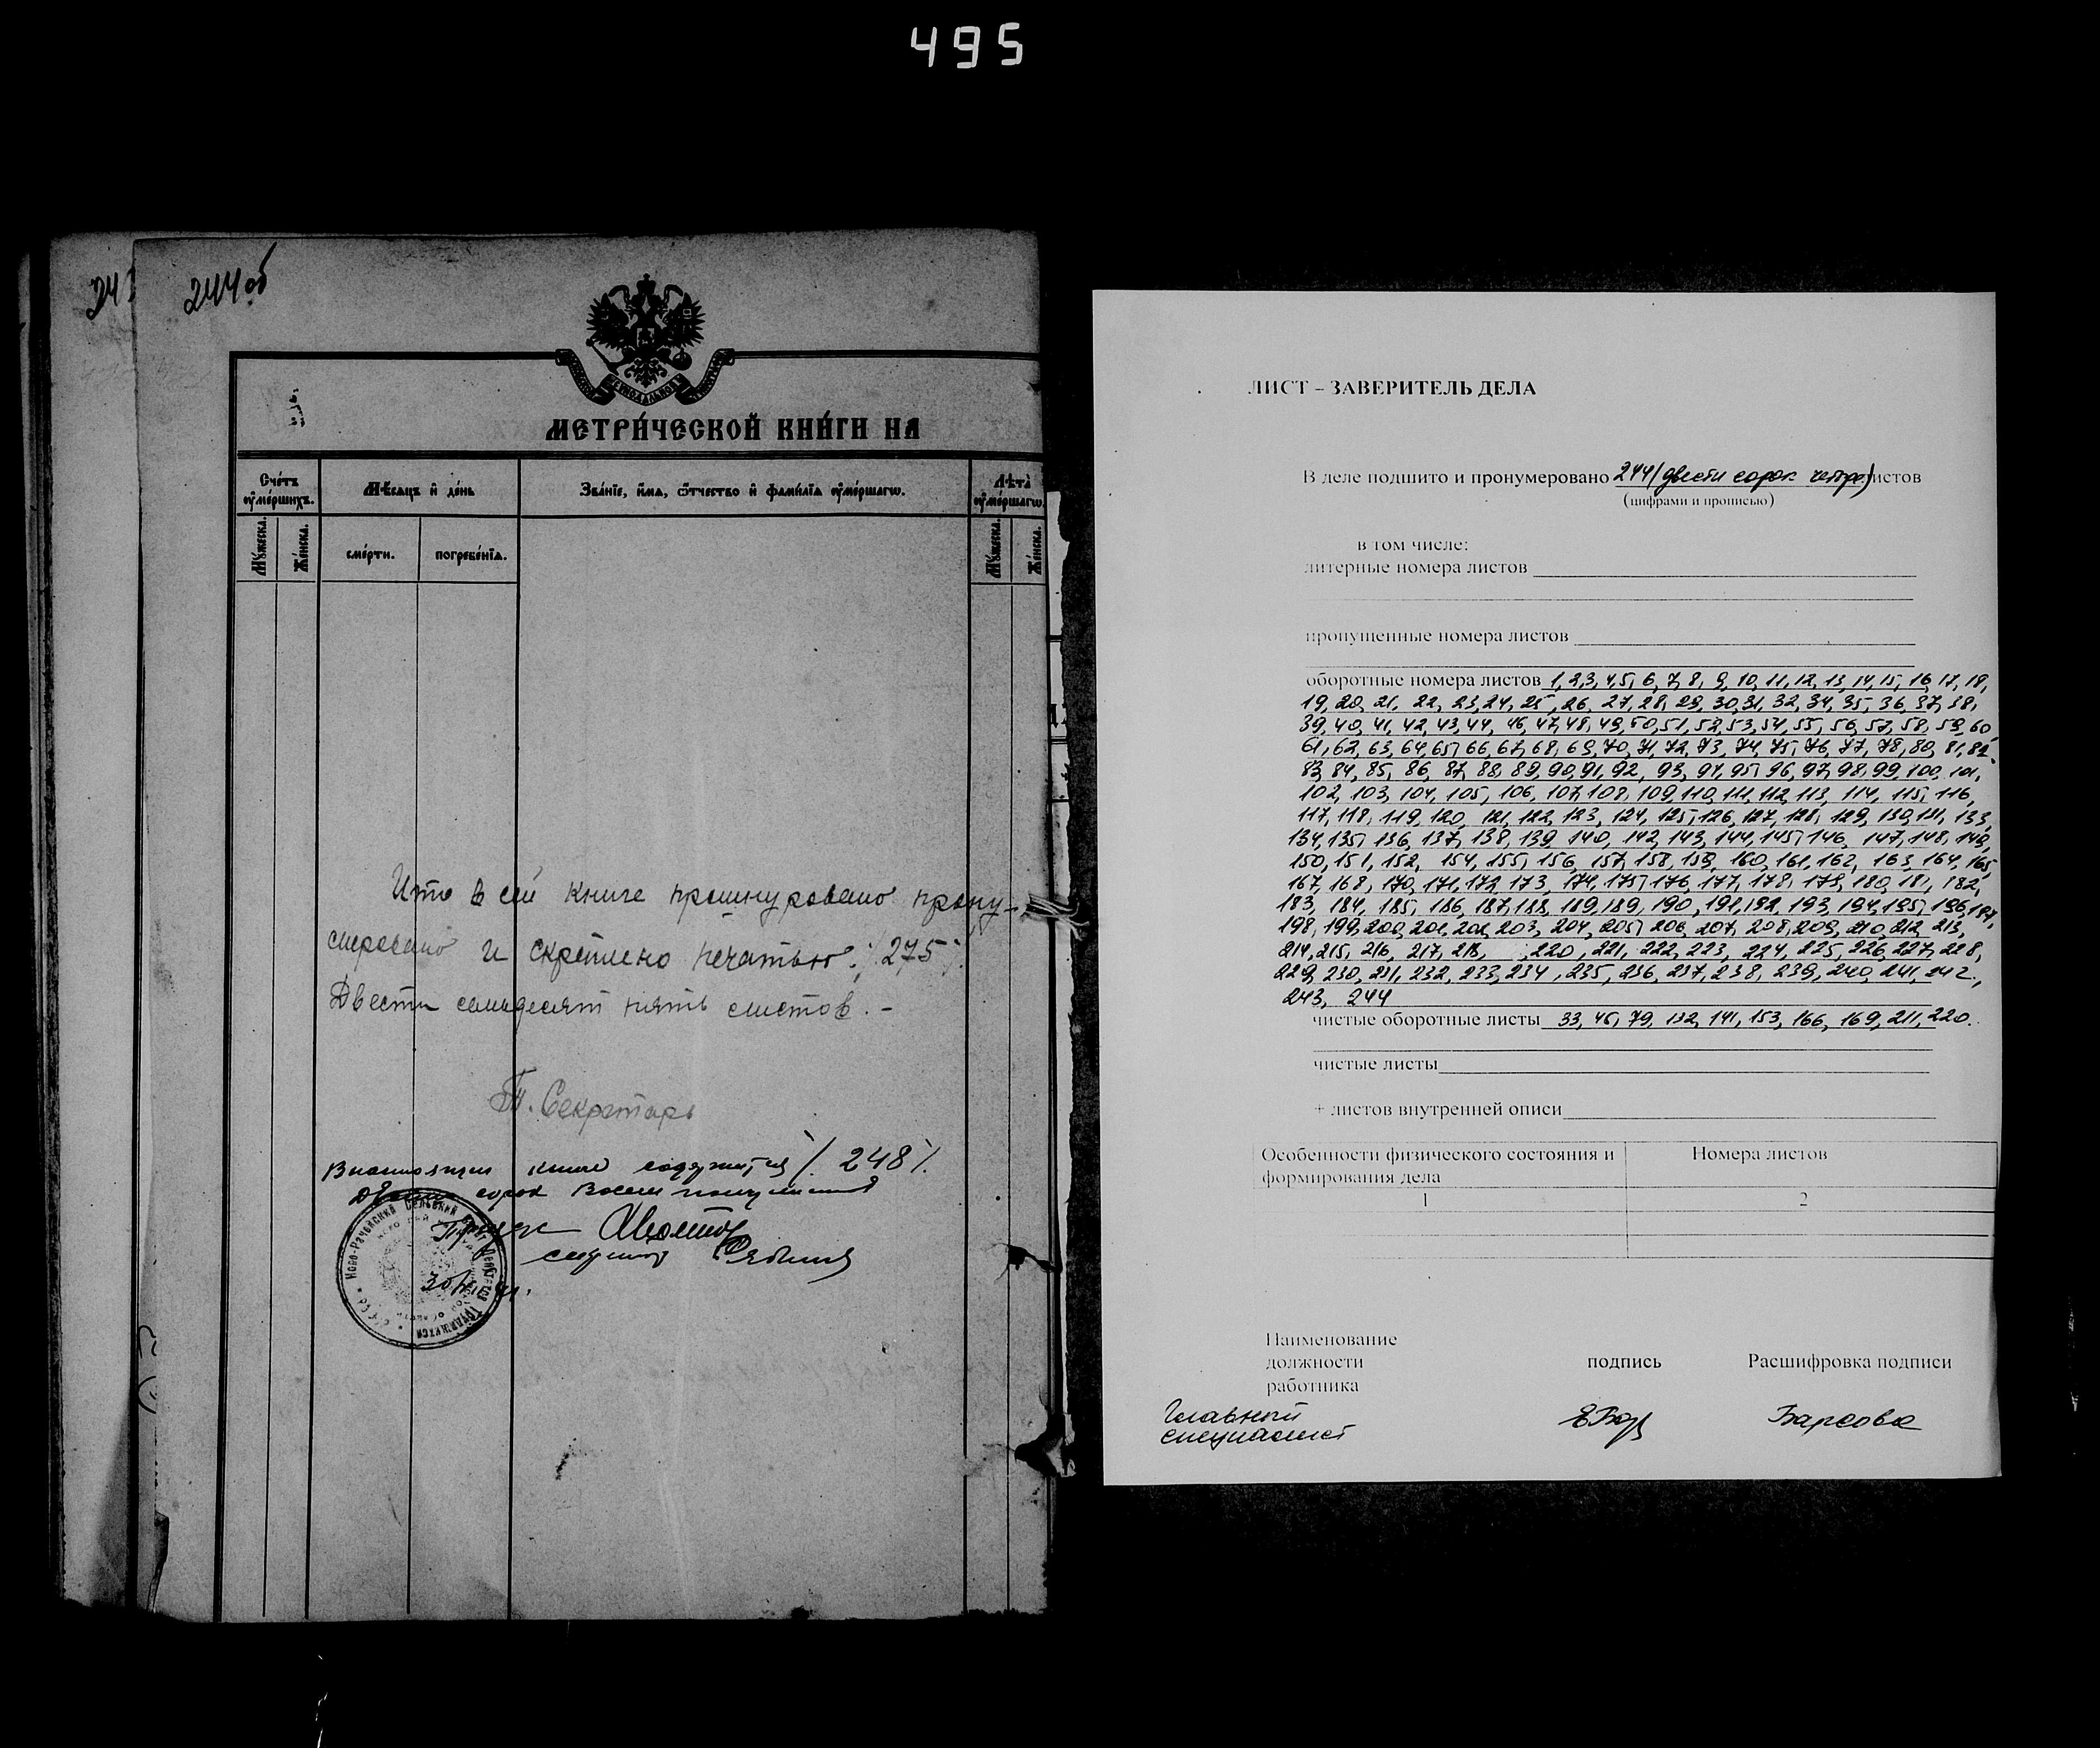 495
244об
МЕТРИ́ЧЕСКОЙ КНИ́ГИ НА
Сче́тъ ᲂу҆ме́ршихъ.
Мѣ́сяцъ и҆ де́нь
Зва́нїе, и҆́мѧ, ѻ҆́тчество и҆ фами́лїѧ ᲂу҆ме́ршагѡ.
Лѣ́та ᲂу҆ме́ршагѡ
Мꙋ́жеска.
Же́нска.
сме́рти.
погребе́нїѧ.
Мꙋ́жеска.
Же́нска.
Что в сей книге прошнуровано прону-
меровано и скреплено печатью ./. 275 ./.
Двести семьдесят пять листов. -
Т. Секретарь
В настоящей книге содержится ./. 248 ./.
Двести сорок восемь
секретарь
ЛИСТ – ЗАВЕРИТЕЛЬ ДЕЛА
В деле подшито и пронумеровано 244 (двести сорок четыре) листов
(цифрами и прописью)
в том числе:
литерные номера листов
пропущенные номера листов
оборотные номера листов 1, 2, 3, 4, 5, 6, 7, 8, 9, 10, 11, 12, 13, 14, 15, 16, 17, 18,
19, 20, 21, 22, 23, 24, 25, 26, 27, 28, 29, 30, 31, 32, 34, 35, 36, 37, 38,
39, 40, 41, 42, 43, 44, 46, 47, 48, 49, 50, 51, 52, 53, 54, 55, 56, 57, 58, 59, 60,
61, 62, 63, 64, 65, 66, 67, 68, 69, 70, 71, 72, 73, 74, 75, 76, 77, 78, 80, 81, 82
83, 84, 85, 86, 87, 88, 89, 90, 91, 92, 93, 94, 95, 96, 97, 98, 99, 100, 101,
102, 103, 104, 105, 106, 107, 108, 109, 110, 111, 112, 113, 114, 115, 116,
117, 118, 119, 120, 121, 122, 123, 124, 125, 126, 127, 128, 129, 130, 131, 133,
134, 135, 136, 137, 138, 139, 140, 142, 143, 144, 145, 146, 147, 148, 149,
150, 151, 152, 154, 155, 156, 157, 158, 159, 160, 161, 162, 163, 164, 165,
167, 168, 170, 171, 172, 173, 174, 175, 176, 177, 178, 179, 180, 181, 182,
183, 184, 185, 186, 187, 188, 189, 189, 190, 191, 192, 193, 194, 195, 196, 197,
198, 199, 200, 201, 202, 203, 204, 205, 206, 207, 208, 209, 210, 212, 213,
214, 215, 216, 217, 218, , 220, 221, 222, 223, 224, 225, 226, 227, 228,
229, 230, 231, 232, 233, 234, 235, 236, 237, 238, 239, 240, 241, 242,
243, 244
чистые оборотные листы 33, 45, 79, 132, 141, 153, 166, 169, 211, 220.
чистые листы
+ листов внутренней описи
Особенности физического состояния и
формирования дела
Номера листов
1
2
Наименование
должности
работника
подпись
Расшифровка подписи
Главный
специалист
Барсова